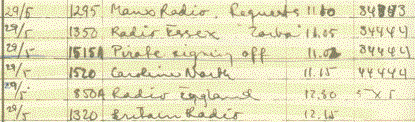 29/5 1295 Manx Radio, Requests 11.00 34443
29/5 1350 Radio Essex 11.05 34444
29/5 1515A Pirate signing off 11.02 34444
29/5 1520 Caroline North 11.15 44444
29/5 850A Radio England 12.30 5 x 5
29/5 1320 Britain Radio 12.15